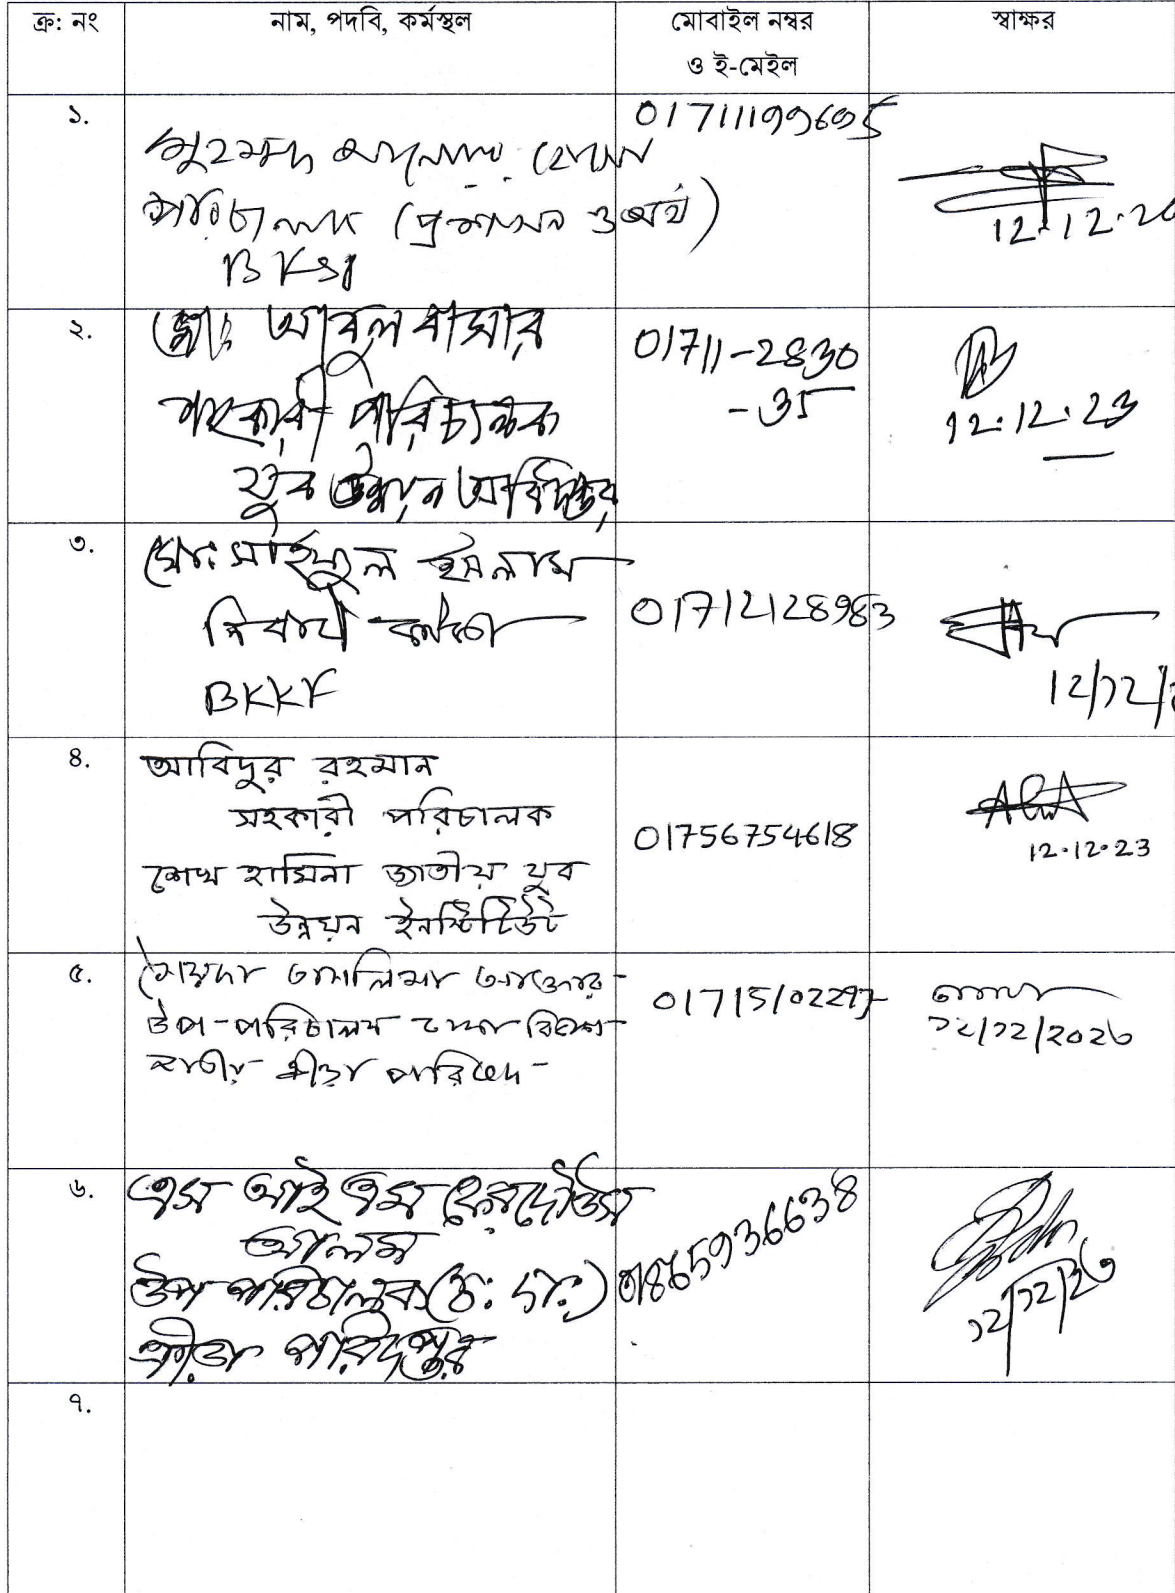 ক্র: নং
নাম, পদবি, কর্মস্থল
মোবাইল নম্বর
ও ই-মেইল
স্বাক্ষর
১.
মুহম্মদ হোসেন
পরিচালক (প্রশাসন ও অর্থ)
BKSP
২.
মোঃ আবুল বাসার
সহকারী পরিচালক
যুব উন্নয়ন অধিদপ্তর
01711-2830
-35
12.12.23
৩.
মোঃ সাইফুল ইসলাম
নির্বাহী কর্মকর্তা
BKKF
01712128983
12/12/
৪.
আবিদুর রহমান
সহকারী পরিচালক
শেখ হাসিনা জাতীয় যুব
উন্নয়ন ইনস্টিটিউট
01756754618
12.12.23
৫.
সৈয়দা তাসলিমা আক্তার
উপ-পরিচালক
জাতীয় ক্রীড়া পরিষদ
১২/১২/২০২৩
৬.
এস আই এম ফেরদৌউস
আলম
উপ পরিচালক (চ: দা:)
ক্রীড়া পরিদপ্তর
01865936638
১২/১২/২৩
৭.